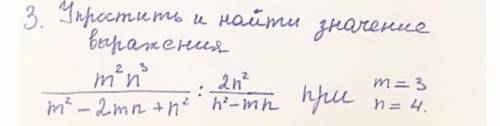 3. Упростить и найти значение
выражения
m²n³ / (m² - 2mn + n²) : 2n² / (n² - mn) при m = 3
n = 4.